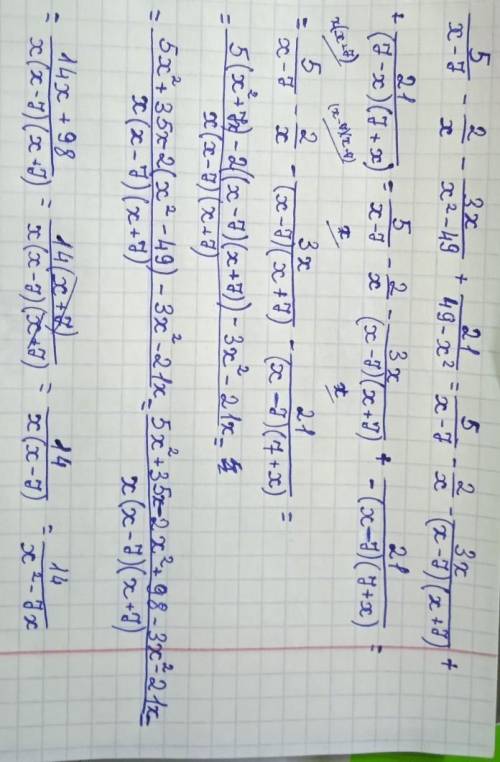 5/(x-7) - 2/x - 3x/(x²-49) + 21/(49-x²) = 5/(x-7) - 2/x - 3x/((x-7)(x+7)) +
+ 21/((7-x)(7+x)) = 5/(x-7) - 2/x - 3x/((x-7)(x+7)) + 21/(-(x-7)(7+x)) =
x(x+7) (x-7)(x+7) x x
= 5/(x-7) - 2/x - 3x/((x-7)(x+7)) - 21/((x-7)(7+x)) =
= (5(x²+7x) - 2((x-7)(x+7)) - 3x² - 21x)/(x(x-7)(x+7)) =
= (5x²+35x-2(x²-49) - 3x² - 21x)/(x(x-7)(x+7)) = (5x²+35x-2x²+98-3x²-21x)/(x(x-7)(x+7)) =
= (14x+98)/(x(x-7)(x+7)) = 14(x+7)/(x(x-7)(x+7)) = 14/(x(x-7)) = 14/(x²-7x)